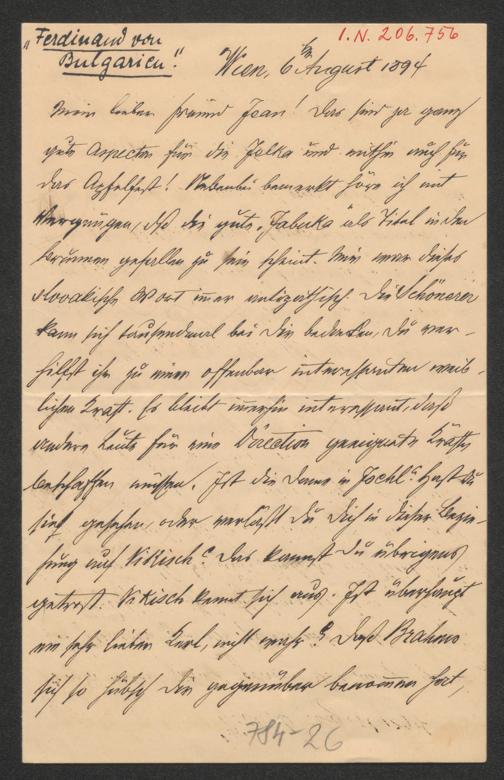 "Ferdinand von
Bulgarien."
I.N. 206.756
Wien, 6ten August 1894
Mein lieber Freund Jean! Das sind ja ganz
gute Aspecten für die Jalka und mithin auch für
das Apfelfest! Nebenbei bemerkt höre ich mit
Vergnügen, daß die gute "Jabuka" als Titel in den
Brunnen gefallen zu sein scheint. Mir war dieses
slovakische Wort immer antipathisch. Die Schönerer
kann sich tausendmal bei Dir bedanken, Du ver-
hilfst ihr zu einer offenbar interessanten weib-
lichen Kraft. Es bleibt immerhin interessant, daß
andere Leute für eine Direction geeignete Kräfte
beschaffen müssen. Ist die Dame in Ischl? Hast Du
sie gesehen, oder verläßt Du Dich in dieser Bezie-
hung auf Nikisch? Das kannst Du übrigens
getrost. Nikisch kennt sich aus. Ist überhaupt
ein sehr lieber Kerl, nicht wahr? Daß Brahms
sich so hübsch Dir gegenüber benommen hat,
784-26